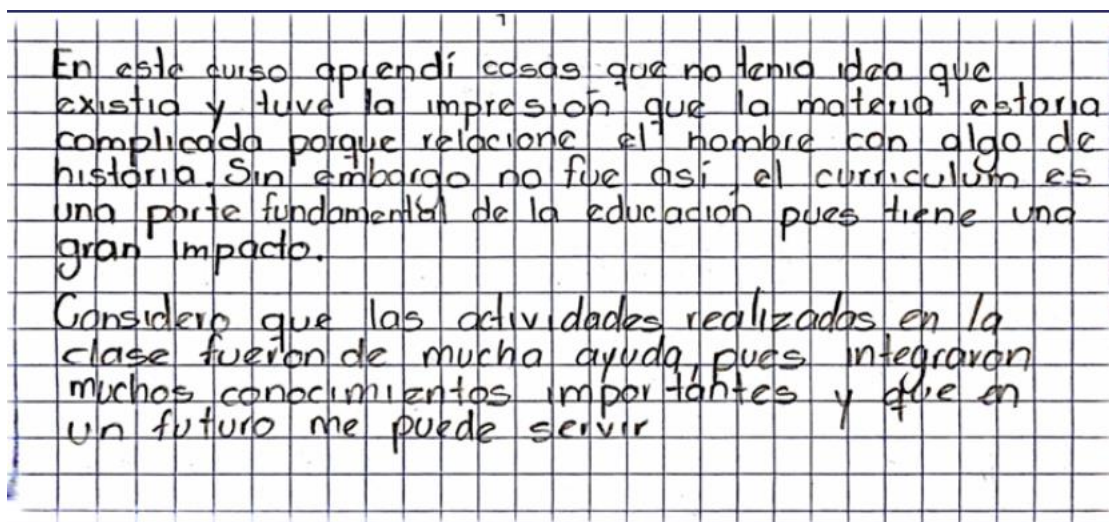 En este curso aprendí cosas que no tenia idea que
existia y tuve la impresión que la materia estaria
complicada porque relacione el nombre con algo de
historia. Sin embargo no fue asi, el curriculum es
una parte fundamental de la educación pues tiene una
gran impacto.
Considero que las actividades realizadas en la
clase fueron de mucha ayuda, pues integraron
muchos conocimientos importantes y que en
un futuro me puede servir